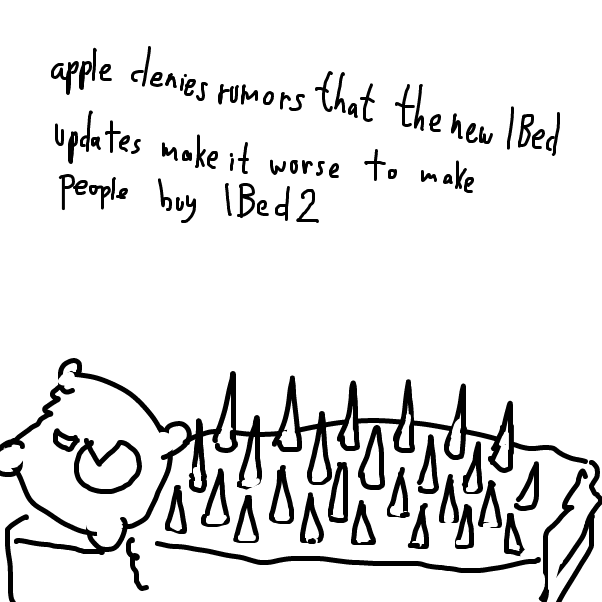 apple denies rumors that the new IBed
updates make it worse to make
people buy IBed 2